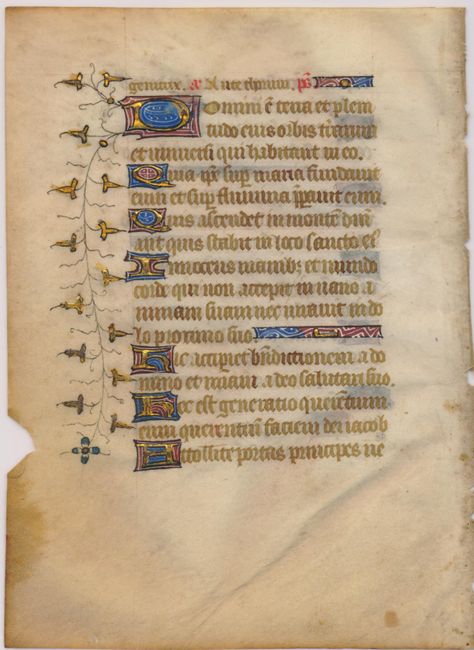 genitrix. a Ante thronum. ps̄
Domini ē terra et pleni
tudo eius orbis terrarum
et universi qui habitant in eo.
Quia ip̄e sup̄ maria fundavit
eum et sup̄ flumina p̄paravit eum.
Quis ascendet in montē dn̄i
aut quis stabit in loco sancto eiꝰ
Innocens manibꝫ et mundo
corde qui non accepit in vano a
nimam suam nec iuravit in do
lo proximo suo
Hic accipiet bn̄dictionem a do
mino et miām a deo salutari suo.
Hec est generatio querentium
eum querentium faciem dei iacob
Attollite portas principes ve